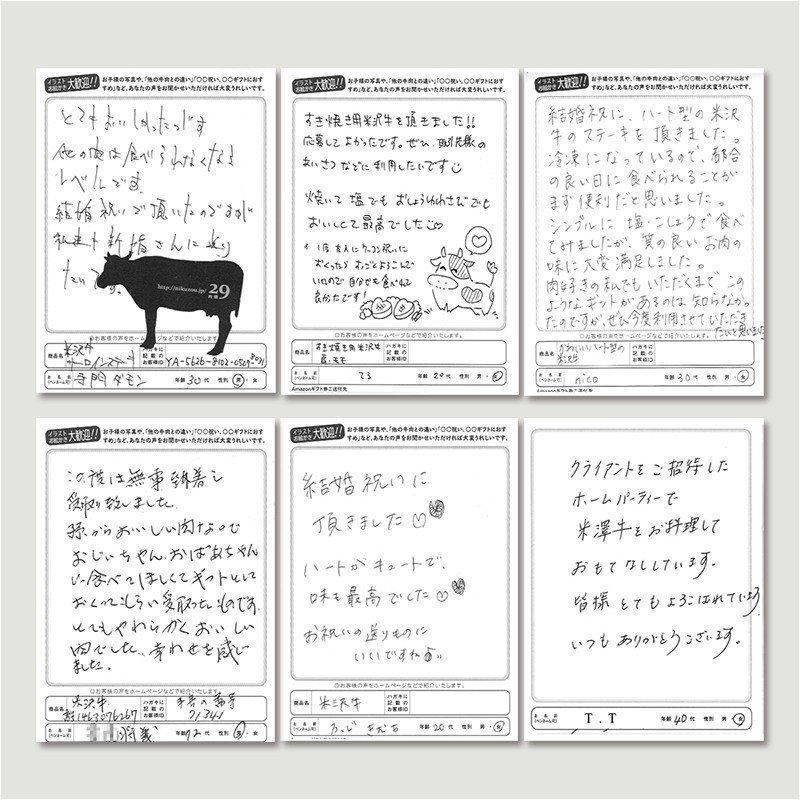 イラスト お絵かき 大歓迎!!
お子様の写真や、「他の牛肉との違い」「〇〇祝い、〇〇ギフトにおす
すめ」など、あなたの声をお聞かせいただければ大変うれしいです。
とてもおいしかったっです
他の肉は食べられなくなる
レベルです。
結婚祝いで頂いたのですが
新婚さんに送り
たいです。
http://nikuzou.jp/ 29
◎お客様の声をホームページなどで紹介いたします。
商品名 米沢牛 サーロインステーキ
ハガキに記載のお客様ID YA-5626-8102-0569-8031
お名前(ペンネーム可) 年齢 30代 性別 男・女
イラスト お絵かき 大歓迎!!
お子様の写真や、「他の牛肉との違い」「〇〇祝い、〇〇ギフトにおす
すめ」など、あなたの声をお聞かせいただければ大変うれしいです。
すき焼き用米沢牛を頂きました!!
応募してよかったです。ぜひ、取引先様の
あいさつなどに利用したいです
焼いて塩でもおしょうゆわさびでも
おいしくて最高でした
1度友人にケッコン祝いに
おくったらすごくよろこんで
いたので自分でも食べれて
良かったです!
◎お客様の声をホームページなどで紹介いたします。
商品名 すき焼き用米沢牛 肩・モモ
ハガキに記載のお客様ID
お名前(ペンネーム可) てる 年齢 20代 性別 男・女
Amazonギフト券ご送付先
イラスト お絵かき 大歓迎!!
お子様の写真や、「他の牛肉との違い」「〇〇祝い、〇〇ギフトにおす
すめ」など、あなたの声をお聞かせいただければ大変うれしいです。
結婚祝に、ハート型の米沢
牛のステーキを頂きました。
冷凍になっているので、都合
の良い日に食べられることが
まず便利だと思いました。
シンプルに塩・こしょうで食べ
てみましたが、質の良いお肉の
味に大変満足しました。
肉好きの私でもいただくまでこの
ようなギフトがあるのは知らなかっ
たのですが、ぜひ今度利用させていただき
たいと思いました
◎お客様の声をホームページなどで紹介いたします。
商品名 かわいいハート型の米沢牛
ハガキに記載のお客様ID
お名前(ペンネーム可) nico 年齢 30代 性別 男・女
イラスト お絵かき 大歓迎!!
お子様の写真や、「他の牛肉との違い」「〇〇祝い、〇〇ギフトにおす
すめ」など、あなたの声をお聞かせいただければ大変うれしいです。
この度は無事到着し
受取り致しました。
孫からおいしい肉なので
おじいちゃん、おばあちゃん
に食べてほしくてギフトとして
おくってもらい受取ったものです。
とてもやわらかくおいしい
肉でした。幸わせを感じ
ました。
◎お客様の声をホームページなどで紹介いたします。
商品名 米沢牛
ハガキに記載のお客様ID 71341
お名前(ペンネーム可) 年齢 72代 性別 男・女
イラスト お絵かき 大歓迎!!
お子様の写真や、「他の牛肉との違い」「〇〇祝い、〇〇ギフトにおす
すめ」など、あなたの声をお聞かせいただければ大変うれしいです。
結婚祝いに
頂きました
ハートがキュートで、
味も最高でした
お祝いの送りものに
いいですね
◎お客様の声をホームページなどで紹介いたします。
商品名 米沢牛
ハガキに記載のお客様ID
お名前(ペンネーム可) 年齢 20代 性別 男・女
クライアントをご招待した
ホームパーティーで
米澤牛をお料理して
おもてなししています。
皆様とてもよろこばれています。
いつもありがとうございます。
お名前(ペンネーム可) T.T 年齢 40代 性別 男・女